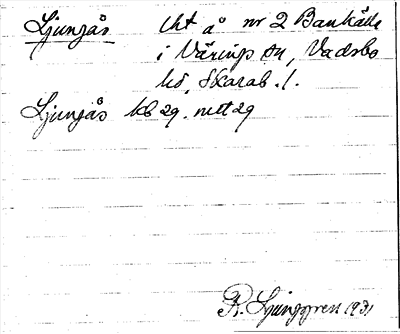 Ljungås Utt å nr 2 Bankälla
i Värings sn, Vadsbo
hd, Skarab. l.
Ljungås kb 29. nett 29
R. Ljunggren 1931